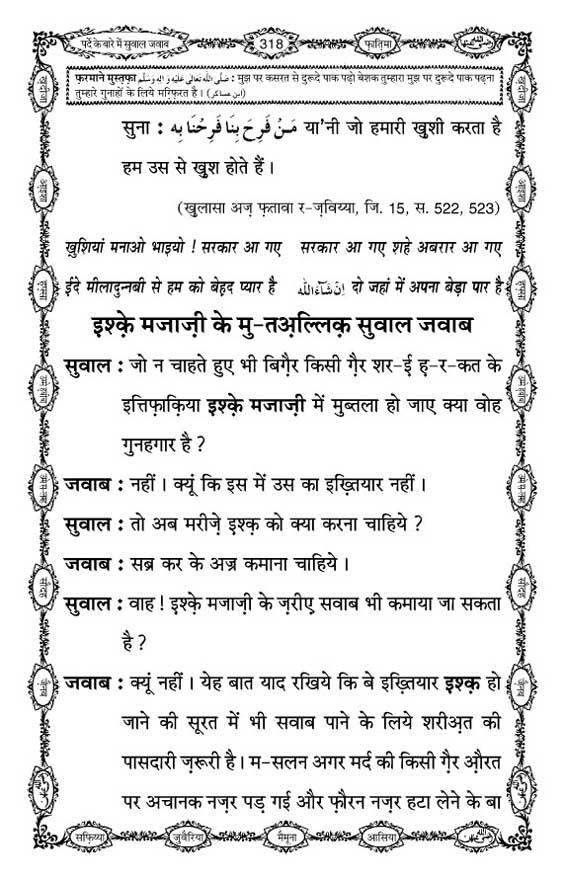 पर्दे के बारे में सुवाल जवाब 318 फ़ातिमा
फ़रमाने मुस्तफ़ा صَلَّى اللهُ تَعَالٰى عَلَيْهِ وَاٰلِهٖ وَسَلَّم : मुझ पर कसरत से दुरूदे पाक पढ़ो बेशक तुम्हारा मुझ पर दुरूदे पाक पढ़ना
तुम्हारे गुनाहों के लिये मग़्फ़िरत है । (ابن عساکر)
सुना : مَنْ فَرِحَ بِنَا فَرِحْنَا بِه या'नी जो हमारी ख़ुशी करता है
हम उस से ख़ुश होते हैं ।
(खुलासा अज़ फ़तावा र-ज़विय्या, जि. 15, स. 522, 523)
ख़ुशियां मनाओ भाइयो ! सरकार आ गए सरकार आ गए शहे अबरार आ गए
ईदे मीलादुन्नबी से हम को बेहद प्यार है اِنْ شَآءَاللّٰه दो जहां में अपना बेड़ा पार है
इश्क़े मजाज़ी के मु-तअ़ल्लिक़ सुवाल जवाब
सुवाल : जो न चाहते हुए भी बिग़ैर किसी ग़ैर शर-ई ह़-र-कत के
इत्तिफ़ाक़िया इश्क़े मजाज़ी में मुब्तला हो जाए क्या वोह
गुनहगार है ?
जवाब : नहीं । क्यूं कि इस में उस का इख़्तियार नहीं ।
सुवाल : तो अब मरीज़े इश्क़ को क्या करना चाहिये ?
जवाब : सब्र कर के अज्र कमाना चाहिये ।
सुवाल : वाह ! इश्क़े मजाज़ी के ज़रीए सवाब भी कमाया जा सकता
है ?
जवाब : क्यूं नहीं । येह बात याद रखिये कि बे इख़्तियार इश्क़ हो
जाने की सूरत में भी सवाब पाने के लिये शरीअ़त की
पासदारी ज़रूरी है । म-सलन अगर मर्द की किसी ग़ैर औ़रत
पर अचानक नज़र पड़ गई और फ़ौरन नज़र हटा लेने के बा
सफ़िय्या जुवैरिया मैमूना आसिया